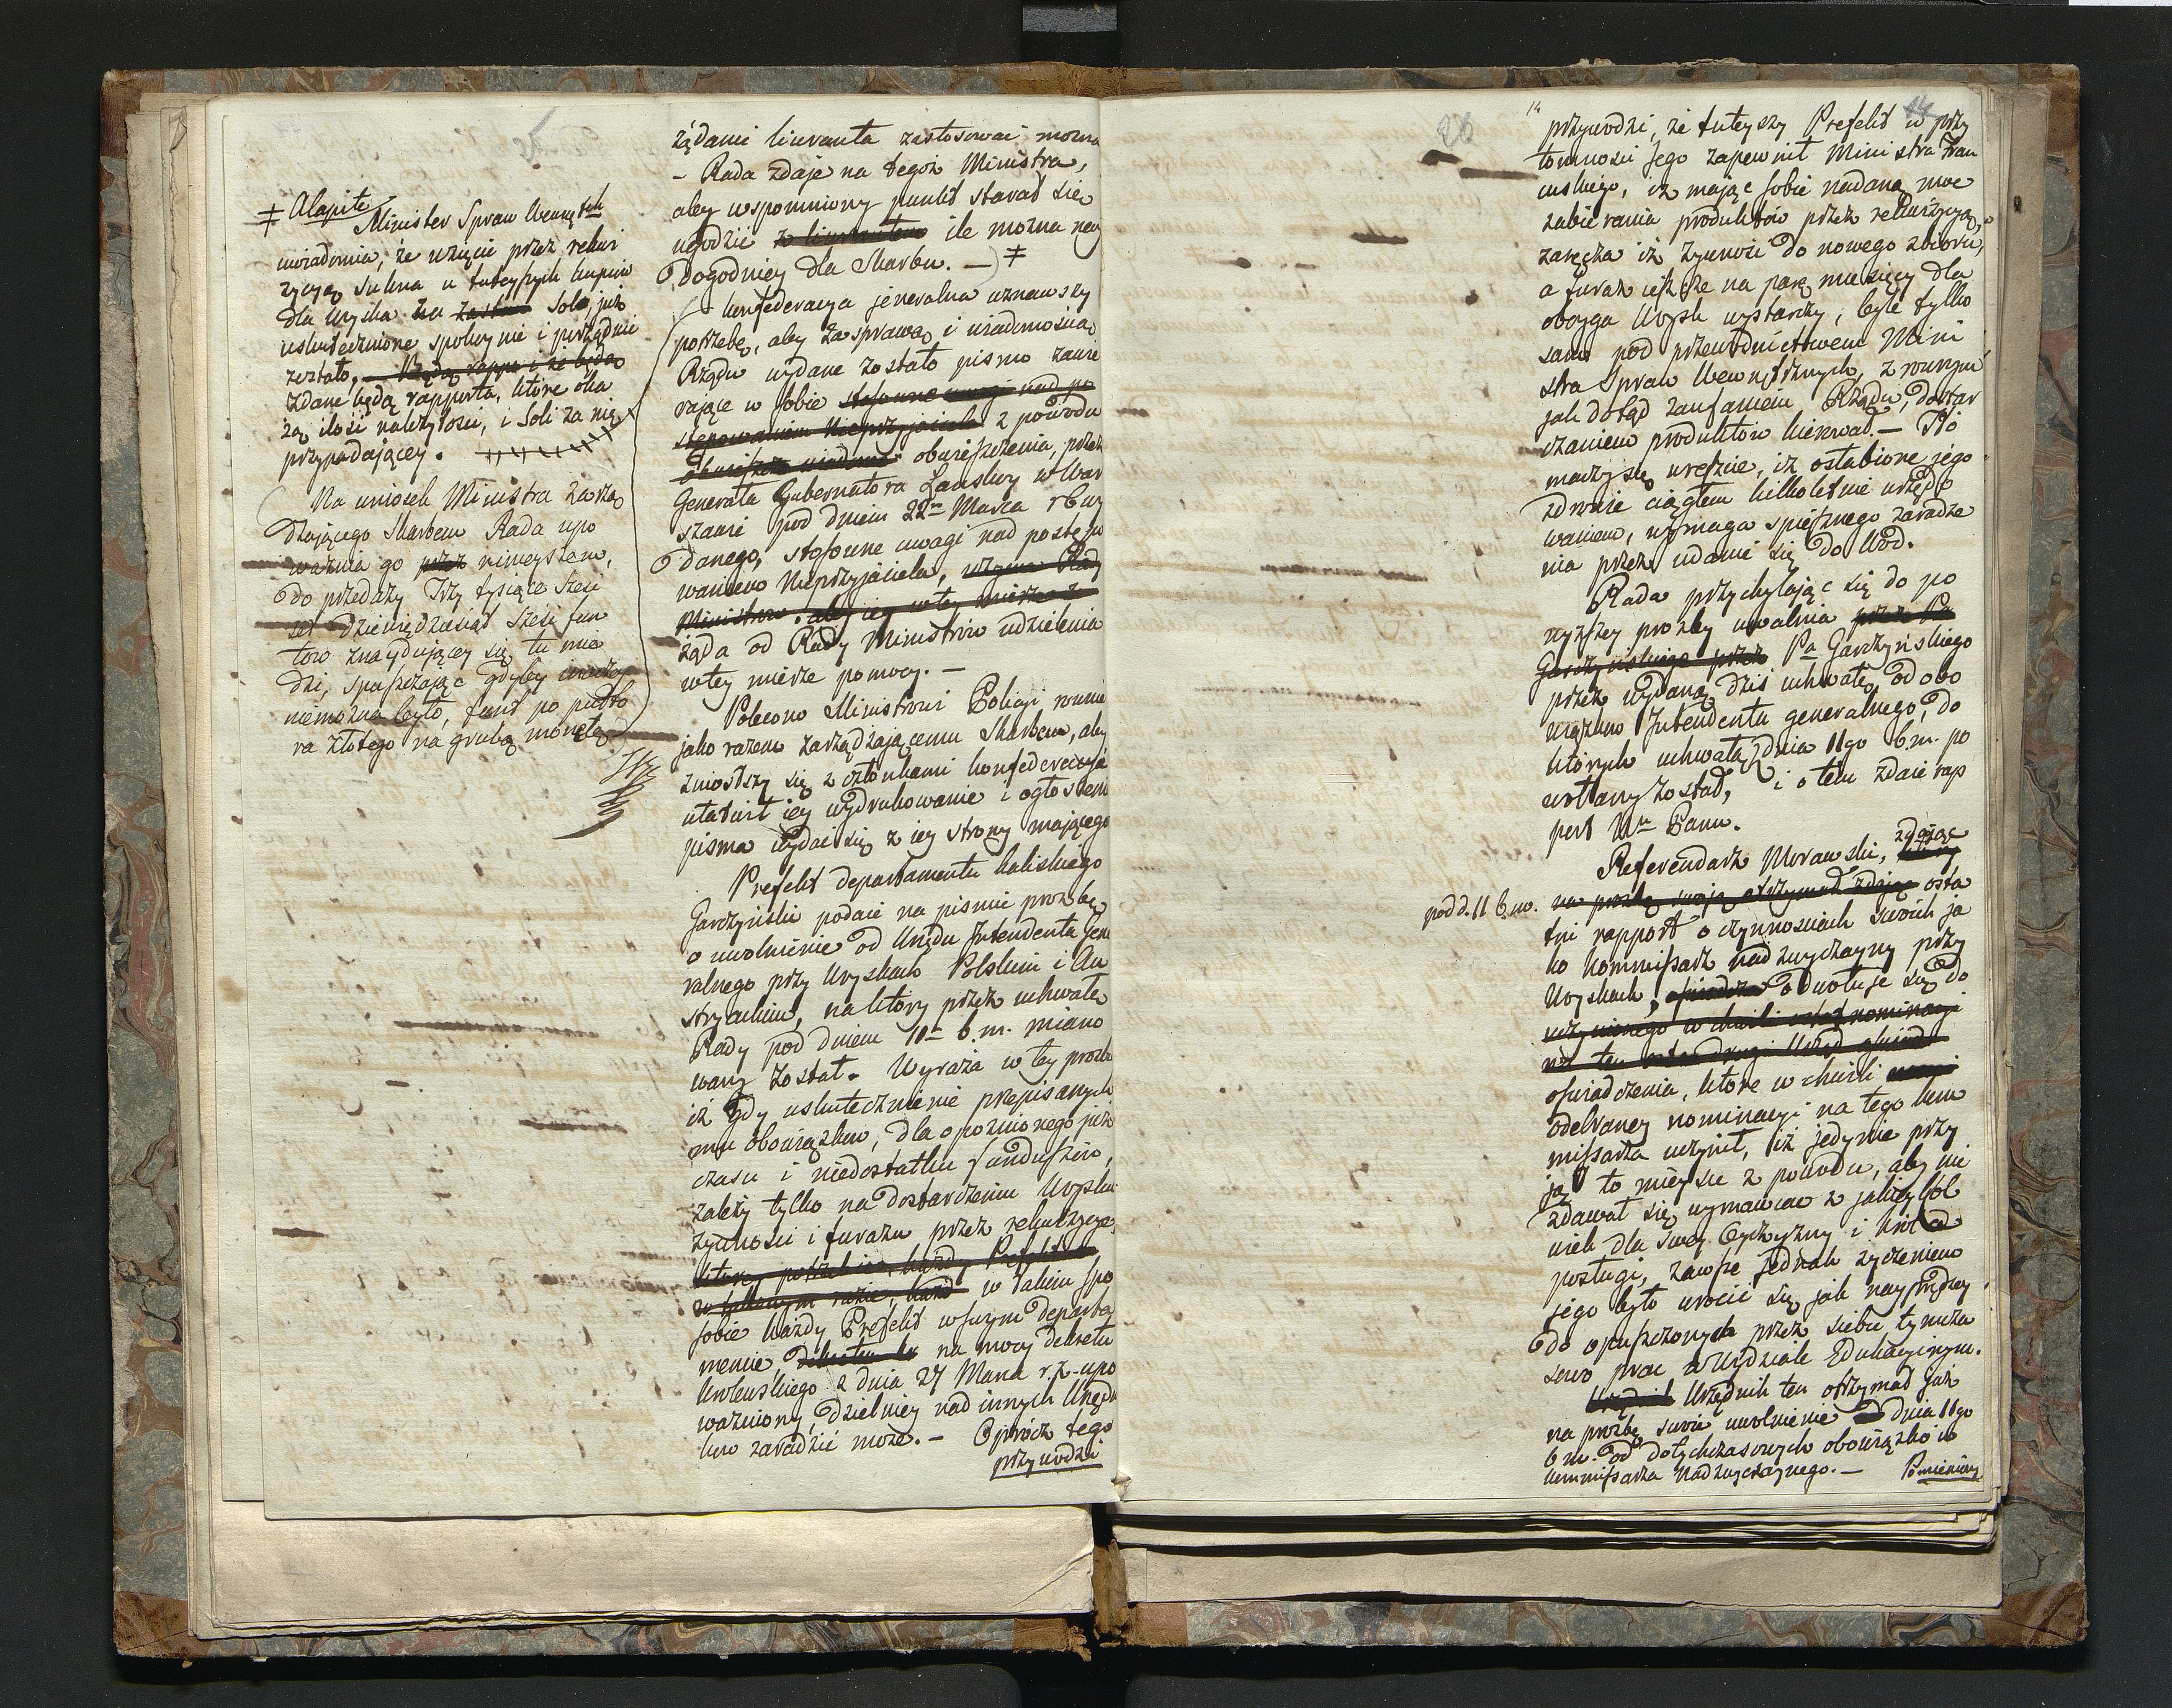 25
≠ Alapite
Minister Spraw Wewnętch
uwiadomia, że wzięcie przez rekwi
zycyą sukna u tuteyszych kupców
dla woyska za zastaw Soli, już
uskutecznione spokoynie i porządnie
zostało,
zdane będą rapporta, które oka
żą ilość należytości, i Soli za nię
przypadającey.
Na wniosek Ministra zarzą
dzającego Skarbem Rada upo
ważnia go przez ninieyszem,
do przedaży Trzy tysiące sześć
set dziewiędziesiąt sześć fun
tów znayduiącey się tu mie
dzi, spuszczając gdyby inaczey
niemożna było, funt po pułto
ra złotego na grubą monetę.
żądanie liweranta zastosować można
- Rada zdaje na tegoż Ministra,
aby wspomniony punkt starał się
ugodzić z liwerantem ile można nay
dogodniey dla Skarbu. — ≠
Konfederacya jeneralna uznawszy
potrzebę, aby za sprawą i wiadomością
Rządu wydane zostało pismo zawie
rające w sobie stosowne uwagi nad po
stępowaniem Nieprzyjaciela z powodu
obwieszczenia, przez
Generała Gubernatora Lanskoy w War
szawie pod dniem 22m Marca r b wy
danego, stosowne uwagi nad postępo
waniem Nieprzyjaciela, wzywa Rady
Ministrów aby iey w tey mierze
żąda od Rady Ministrów udzielenia
w tey mierze pomocy. —
Polecono Ministrowi Policyi, równie
jako razem zarządzającemu Skarbem, aby
zniosłszy się z członkami konfederacyi
ułatwił iey wydrukowanie i ogłoszenie
pisma wydać się z iey strony mającego
Prefekt departamentu kaliskiego
Garczyński podaie na piśmie prozbę
o uwolnienie od Urzędu Intendenta Gene
ralnego przy woyskach Polskim i Au
stryackim, na który przez uchwałę
Rady pod dniem 11m b. m. miano
wany został. Wyraża w tey prozbie
iż gdy uskutecznienie przepisanych
mu obowiązków, dla opoznionego już
czasu i niedostatku funduszów,
zależy tylko na dostarczeniu woysku
żywności i furażu przez rekwizycye,
którey potrzebie każdy Prefekt
w takowym razie, każd w takim spo
sobie każdy Prefekt w swym departa
mencie, na mocy dekretu
Królewskiego z dnia 27 Marca r. z. upo
ważniony, dzielniey nad innych Urzędni
ków zaradzić może. — Oprócz tego
przywodzi
26
14
przywodzi, że tuteyszy Prefekt w przy
tomności jego zapewnił Ministra Fran
cuskiego, iż mając sobie nadaną moc
zabierania produktów przez rekwizycyą,
zaręcza iż żywność do nowego zbioru,
a furaż jeszcze na parę miesięcy dla
oboyga woysk wystarczy, byle tylko
sam pod przewodnictwem Mini
stra Spraw Wewnętrznych, z rownym
jak dotąd zaufaniem Rządu, dostar
czaniem produktów kierował. — Tło
maczy się wreszcie, iż osłabione jego
zdrowie ciągłem kilkoletnie urzędo
waniem, wymaga spiesznego zaradze
nia przez udanie się do Wód.
Rada przychylając się do po
wyższey prozby uwalnia przez Pa
Garczyńskiego przez Pa Garczyńskiego
przez wydaną dziś uchwałę od obo
wiązków Intendenta generalnego, do
których uchwałą z dnia 11go b. m. po
wołany został, i o tem zdaie rap
port Nu Panu.
Referendarz Morawski, zdając
pod d. 11 b. m.
na prozbę swoją otrzymał zdając osta
tni rapport o czynnościach swoich ja
ko kommissarz nadzwyczayny przy
Woyskach, odwołuje się do
uczynionego w chwili nominacyi
oświadczenia, które w chwili
odebraney nominacyi na tego kom
missarza uczynił, iż jedynie przy
jął to mieysce z powodu, aby nie
zdawał się wymawiać z jakieykol
wiek dla swey Oyczyzny i Króla
posługi, zawsze jednak życzeniem
jego było wrócić się jak nayprędzey
do opuszczonych przez siebie tymcza
sowo prac w wydziale Edukacyinym.
Urzędnik Urzędnik ten otrzymał już
na prozbę swoię uwolnienie dnia 11go
b m. od dotychczasowych obowiązków
kommissarza nadzwyczaynego. — Pomieniony